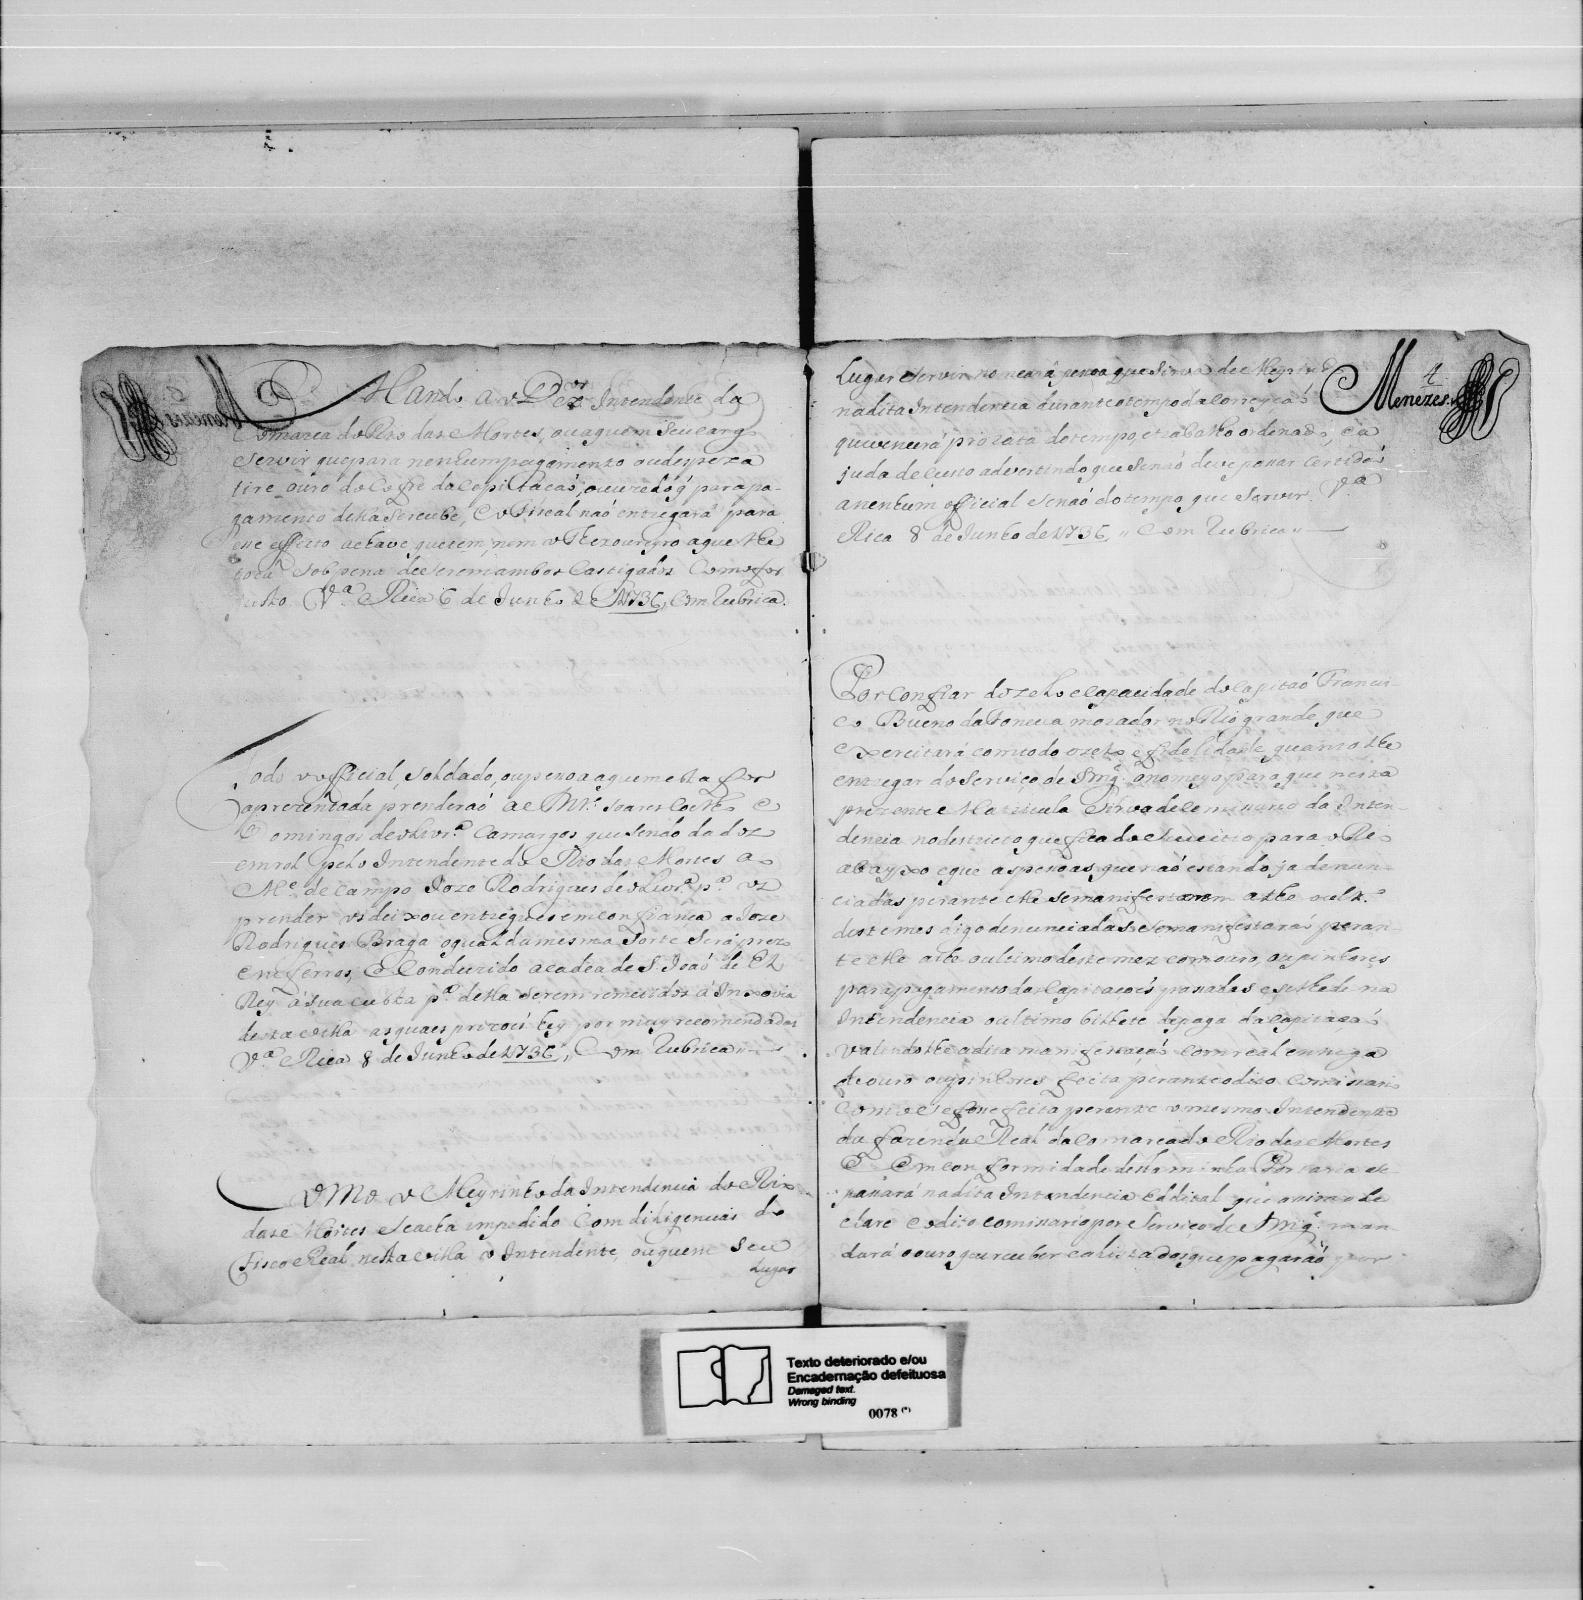 Mando ao Dez.or Intendente da
Comarca do Rio das Mortes, ou a quem seu cargo
servir que para nenhum pagamento ou despeza
tire ouro do Cofre da Capitação, que para pa-
gamento della se recebe, e o Fiscal não entregará para
esse effeito a chave que tem, nem o Thezoureyro a que lhe
toca sob pena de serem ambos castigados como for
justo. V.a Rica 6 de Junho de 1736, Com Rubrica.
Todo o official, soldado, ou pesoa a quem esta for
aprezentada, prenderaõ a e M.el Soares Coelho e
Domingos de Olivr.a Camargos que sendo dados
em rol pelo Intendente do Rio das Mortes ao
M.e de Campo Joze Rodrigues de Olivr.a p.a os
prender os deixou entregues em confiança a Joze
Rodrigues Braga o qual da mesma sorte será prezo
em ferros, e conduzido a cadea de S. Joaõ de El
Rey á sua custa p.a della serem remetidos á Inxovia
desta villa as quaes prizoes hey por muy recomendadas
V.a Rica 8 de Junho de 1736, Com Rubrica
Como o Meyrinho da Intendencia do Rio
das Mortes se acha impedido com diligencias do
Fisco Real nesta villa o Intendente ou quem seu
Lugar
Menezes
4
Lugar servir nomeará pesoa que sirva de Meyrinho
na dita Intendencia durante o tempo da
que vencerá prorata do tempo, e trabalho o ordenado, e a
juda de custo advertindo que senaõ deve pasar certidaõ
a nenhum official senaõ do tempo que servir. V.a
Rica 8 de Junho de 1736, Com Rubrica
Por confiar do zelo e capacidade do Capitaõ Francis-
co Bueno da Fonseca morador no Rio grande, que
exercitará com todo o zelo e fidelidade, quanto lhe
encregar do Serviço de S Mg.e o nomeyo para que nesta
prezente Matricula sirva de Comissario da Inten-
dencia no destricto que fica do para o Rio
abayxo e que as pesoas, que naõ estando ja denun-
ciadas perante elle se manifestarem athe o ult.o
deste mes digo denunciadas se manifestaraõ peran-
te elle athe o ultimo deste mez com ouro, ou pinhores
para pagamento das Capitaçoes pasadas e se lhe de na
Intendencia o ultimo bilhete de paga da Capitaçaõ
valendolhe a dita manifestaçaõ com real entrega
de ouro ou pinhores feita perante o dito Comissario
como se fose feita perante o mesmo Intendente
da fazenda Real da Comarca do Rio das Mortes
E em conformidade desta minha Portaria se
pasará na dita Intendencia Edital que asim o de
clare e o dito comisario por serviço de S Mg.e man
dará o ouro que receber e a lista dos que pagaraõ por
Texto deteriorado e/ou
Encadernação defeituosa
Damaged text.
Wrong binding
0078 (*)